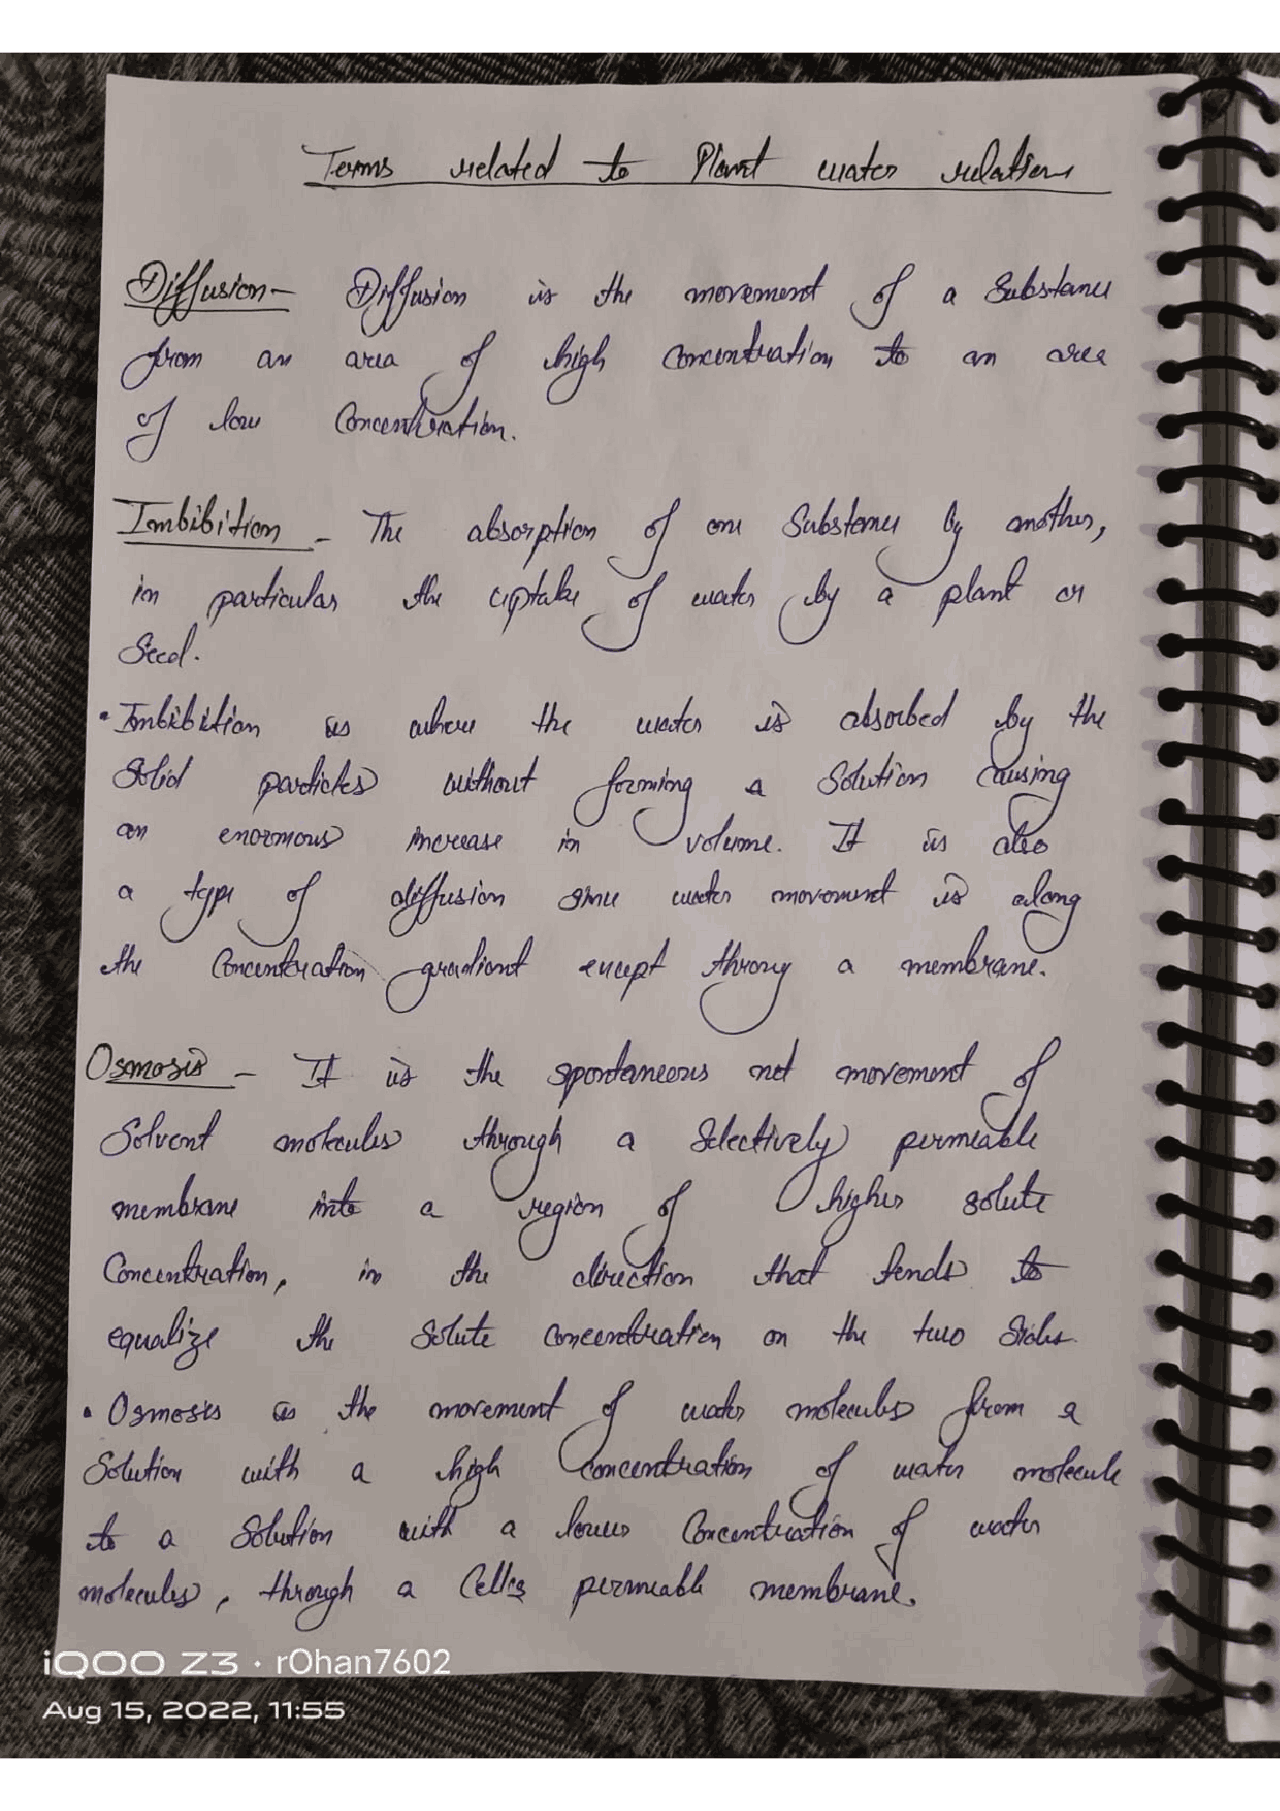 Terms related to Plant water relations
Diffusion - Diffusion is the movement of a Substance
from an area of high Concentration to an area
of low Concentration.
Imbibition - The absorption of one Substance by another,
in particular the uptake of water by a plant or
Seed.
• Imbibition is where the water is absorbed by the
Solid particles without forming a Solution causing
an enormous increase in volume. It is also
a type of diffusion since water movement is along
the Concentration gradient except throug a membrane.
Osmosis - It is the spontaneous net movement of
Solvent molecules through a Selectively permeable
membrane into a region of higher solute
Concentration, in the direction that tends to
equalize the Solute concentration on the two Sides.
• Osmosis is the movement of water molecules from a
Solution with a high concentration of water molecule
to a Solution with a lower Concentration of water
molecules, through a Cell's permeable membrane.
iQOO Z3 · rOhan7602
Aug 15, 2022, 11:55